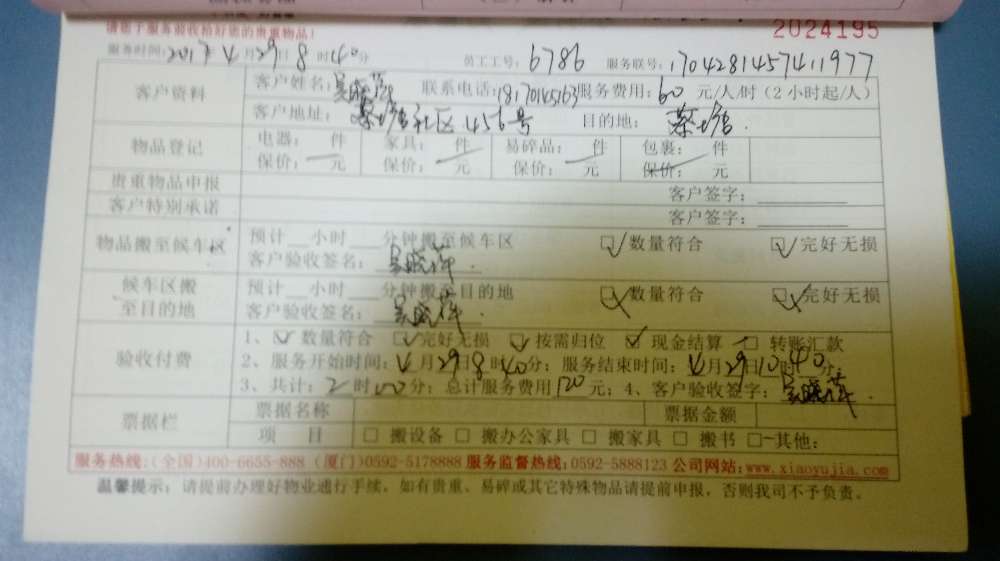 请您于服务前收拾好您的贵重物品！ 2024195
服务时间：2017年4月29日8时40分 员工工号：6786 服务联号：1704281457411977
客户资料 客户姓名： 联系电话：18170145163 服务费用：60元/人/时（2小时起/人）
客户地址：蔡塘社区456号 目的地：蔡塘
物品登记 电器： 件 家具： 件 易碎品： 件 包裹： 件
保价： 元 保价： 元 保价： 元 保价： 元
贵重物品申报 客户签字：
客户特别承诺 客户签字：
物品搬至候车区 预计__小时__分钟搬至候车区 ☑数量符合 ☑完好无损
客户验收签名：
候车区搬至目的地 预计__小时__分钟搬至目的地 ☑数量符合 ☑完好无损
客户验收签名：
验收付费 1、☑数量符合 ☑完好无损 ☑按需归位 ☑现金结算 □转账汇款
2、服务开始时间：4月29日8时40分；服务结束时间：4月29日10时40分；
3、共计：2时00分；总计服务费用120元；4、客户验收签字：
票据栏 票据名称 票据金额
项 目 □搬设备 □搬办公家具 □搬家具 □搬书 □其他：
服务热线：（全国）400-6655-888（厦门）0592-5178888 服务监督热线：0592-5888123 公司网站：www.xiaoyujia.com
温馨提示：请提前办理好物业通行手续，如有贵重、易碎或其它特殊物品请提前申报，否则我司不予负责。